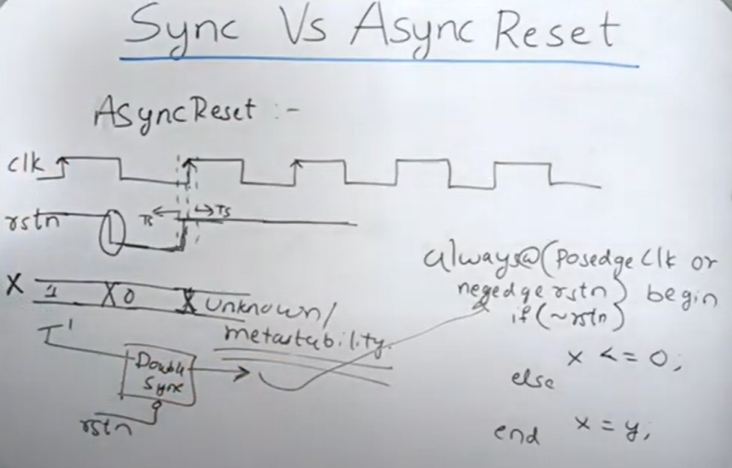 Sync Vs Async Reset
Async Reset :-
clk
rstn
Ts
Ts
X 1 X 0 X Unknown/
metastability.
1'
Double
Sync
rstn
always@(posedge clk or
negedge rstn) begin
if(~rstn)
x <= 0;
else
x = y;
end